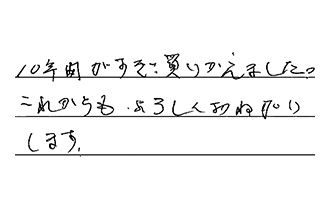 10年間がすぎ買りかえました。
これからも よろしくおねがい
します。